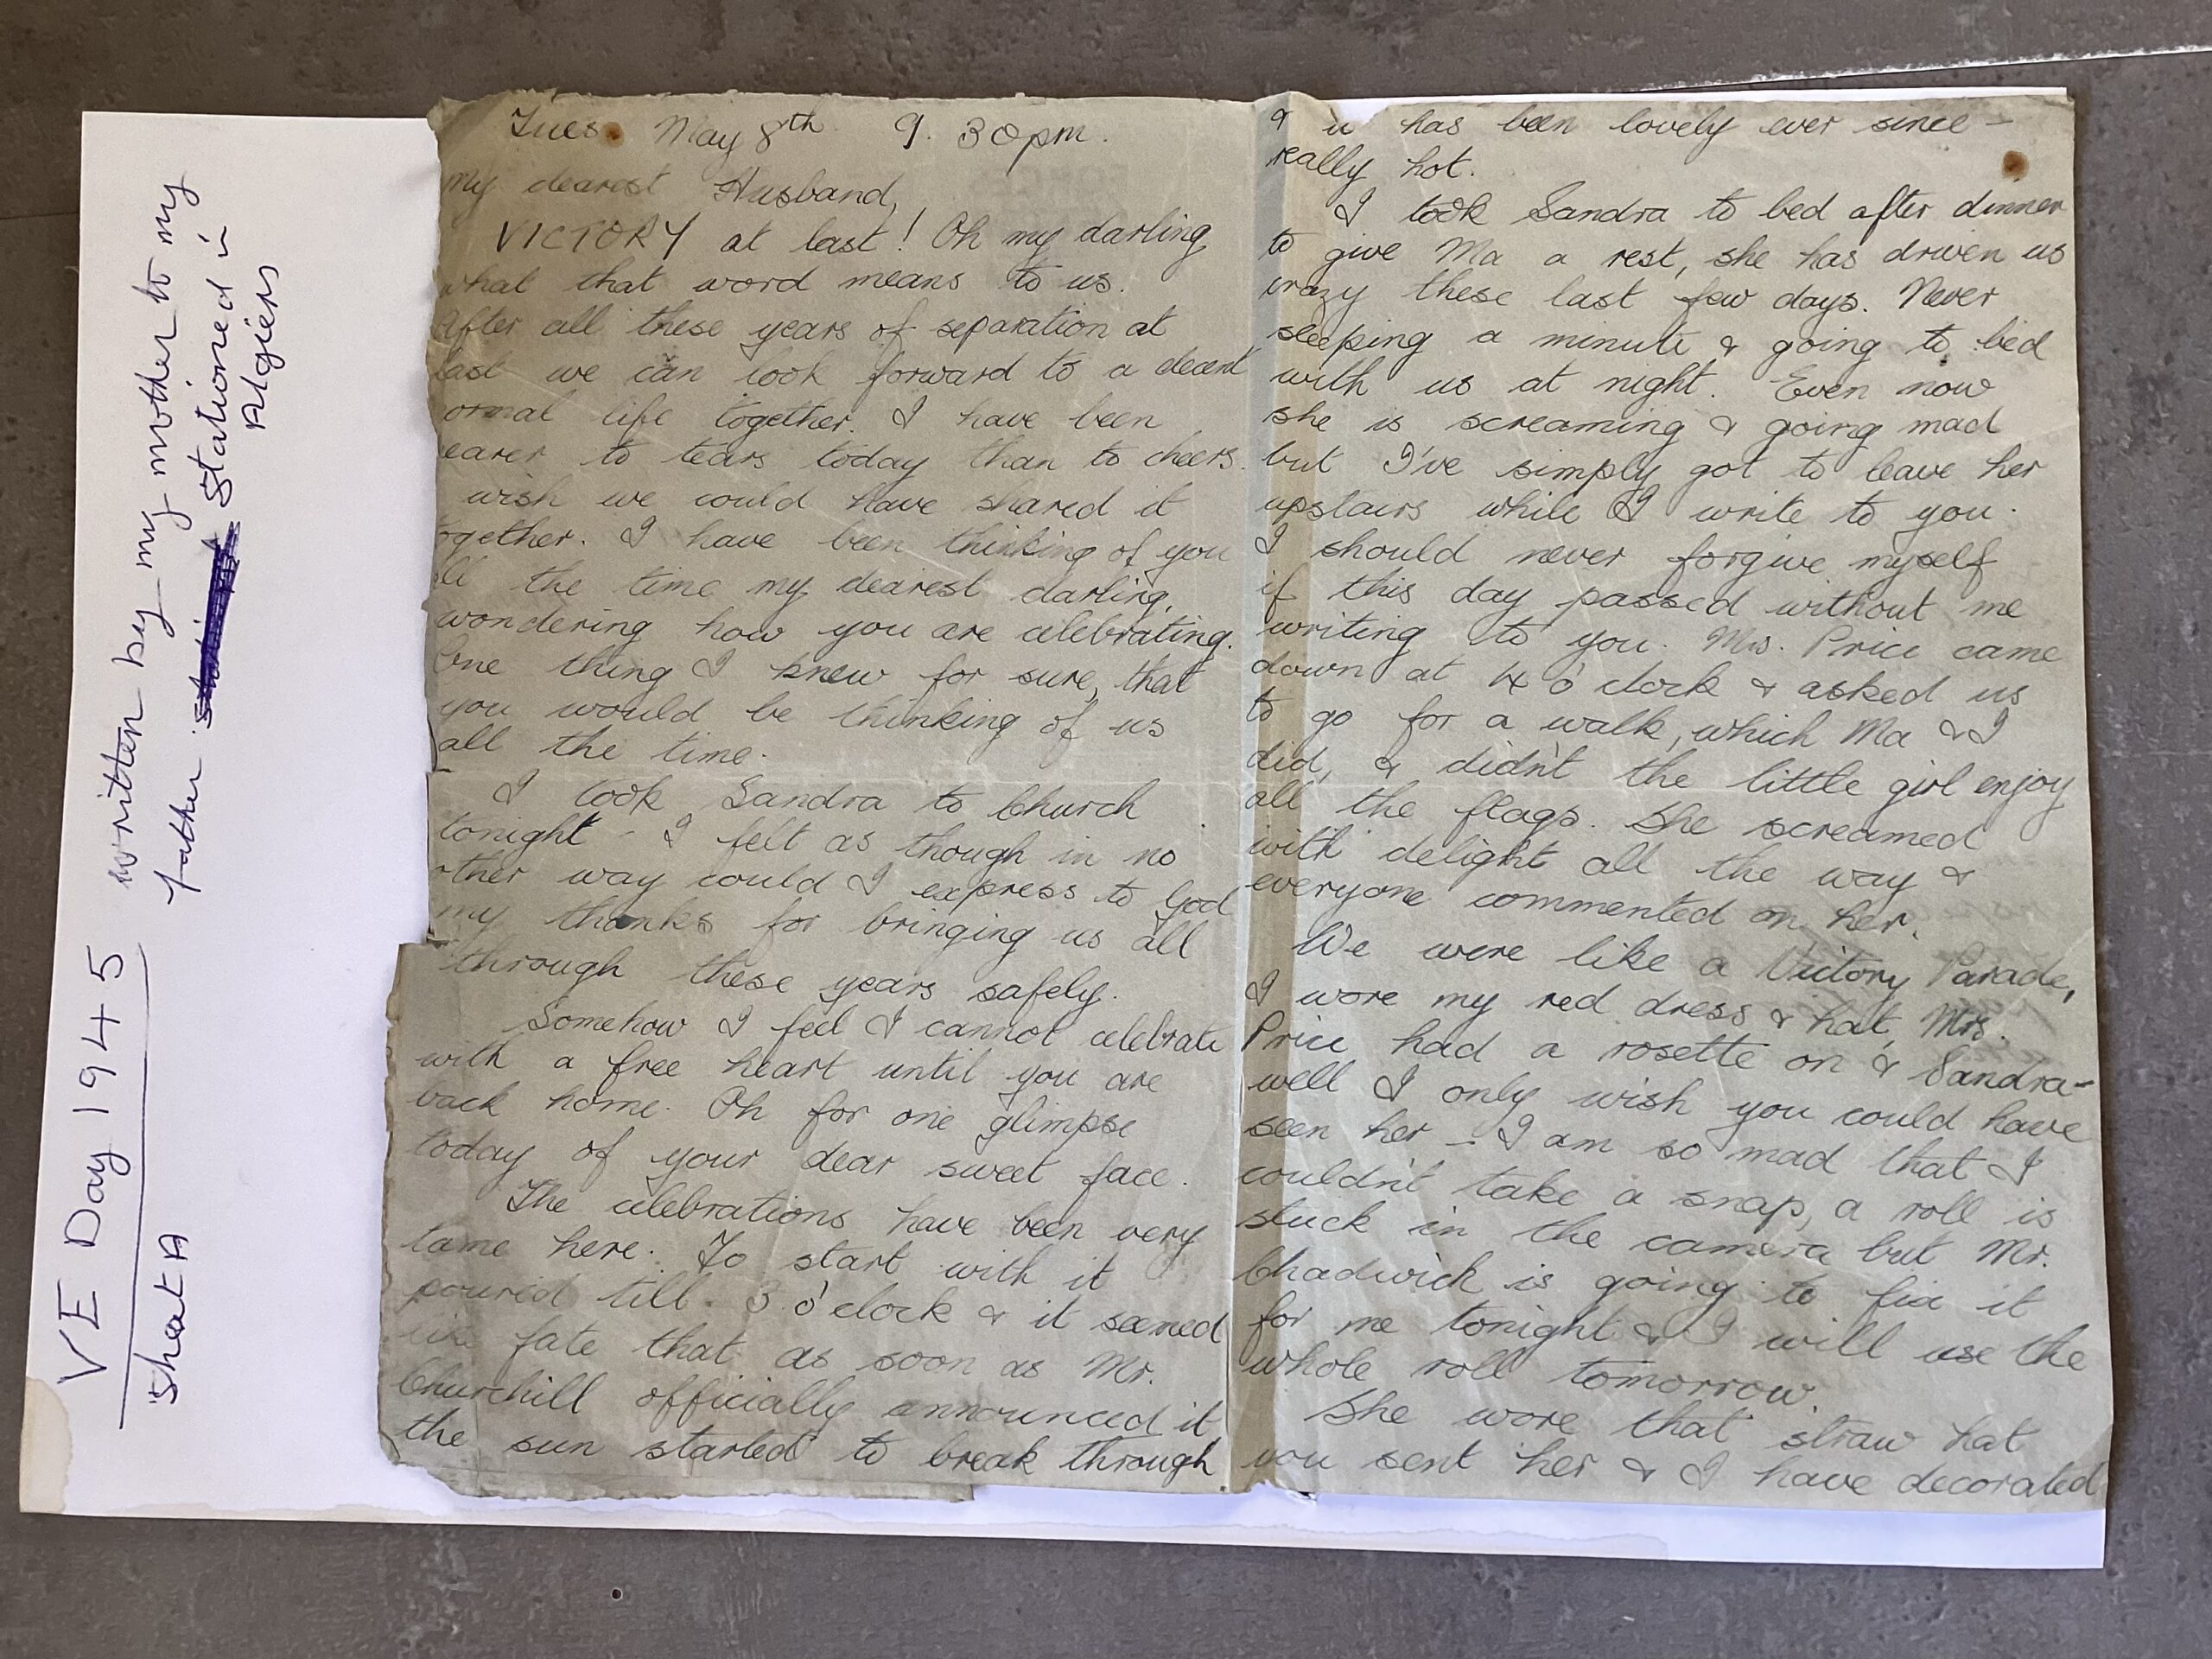 VE Day 1945 written by my mother to my
father stationed in
Algiers
Sheet A
Tues. May 8th 9.30pm.
My dearest Husband,
VICTORY at last! Oh my darling
what that word means to us.
After all these years of separation at
last we can look forward to a decent
ormal life together. I have been
earer to tears today than to cheers.
wish we could have shared it
ogether. I have been thinking of you
all the time my dearest darling,
wondering how you are celebrating.
One thing I knew for sure, that
you would be thinking of us
all the time.
I took Sandra to Church
tonight - I felt as though in no
other way could I express to God
my thanks for bringing us all
through these years safely.
Somehow I feel I cannot celebrate
with a free heart until you are
back home. Oh for one glimpse
today of your dear sweet face.
The celebrations have been very
tame here. To start with it
poured till 3 o'clock & it seemed
like fate that as soon as Mr.
Churchill officially announced it
the sun started to break through
& it has been lovely ever since -
really hot.
I took Sandra to bed after dinner
to give Ma a rest, she has driven us
crazy these last few days. Never
sleeping a minute & going to bed
with us at night. Even now
she is screaming & going mad
but I've simply got to leave her
upstairs while I write to you.
I should never forgive myself
if this day passed without me
writing to you. Mrs. Price came
down at 4 o'clock & asked us
to go for a walk, which Ma & I
did, & didn't the little girl enjoy
all the flags. She screamed
with delight all the way &
everyone commented on her.
We were like a Victory Parade,
I wore my red dress & hat, Mrs.
Price had a rosette on & Sandra -
well I only wish you could have
seen her - I am so mad that I
couldn't take a snap, a roll is
stuck in the camera but Mr.
Chadwick is going to fix it
for me tonight & I will use the
whole roll tomorrow.
She wore that straw hat
you sent her & I have decorated